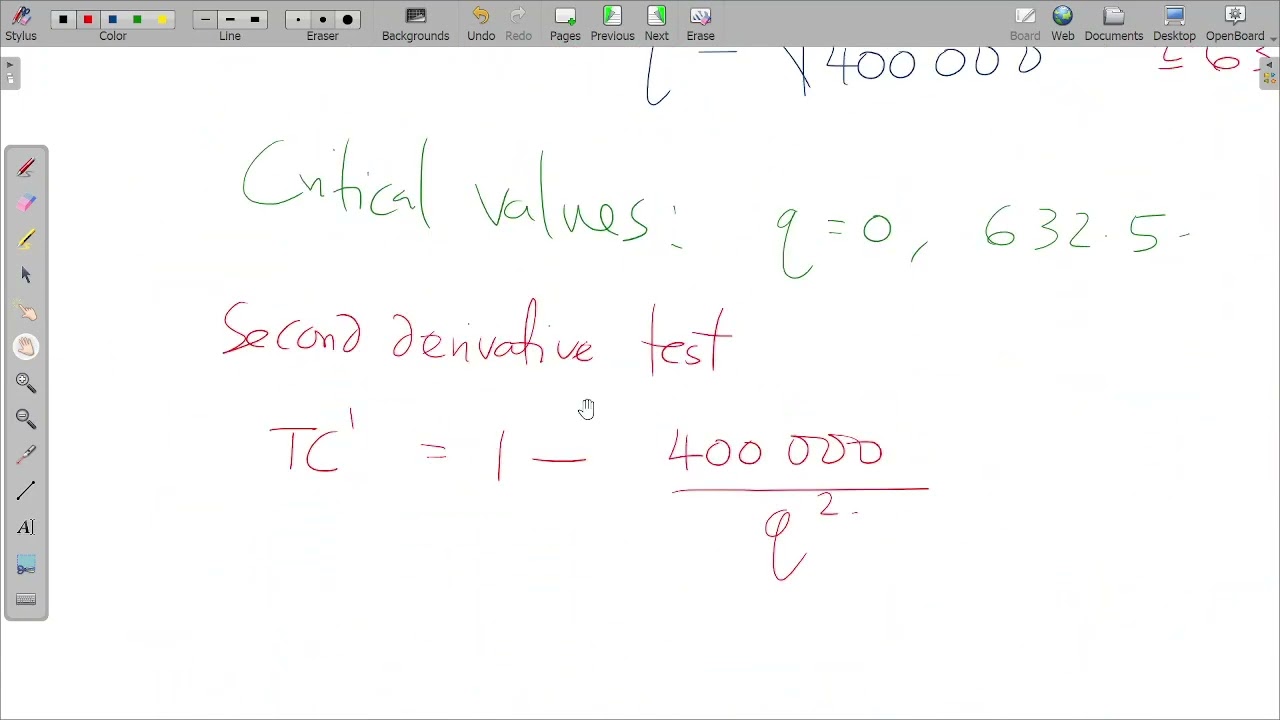 Stylus Color Line Eraser Backgrounds Undo Redo Pages Previous Next Erase Board Web Documents Desktop OpenBoard
q = √400 000
Critical values: q = 0, 632.5
Second derivative test
TC' = 1 — 400 000
q²